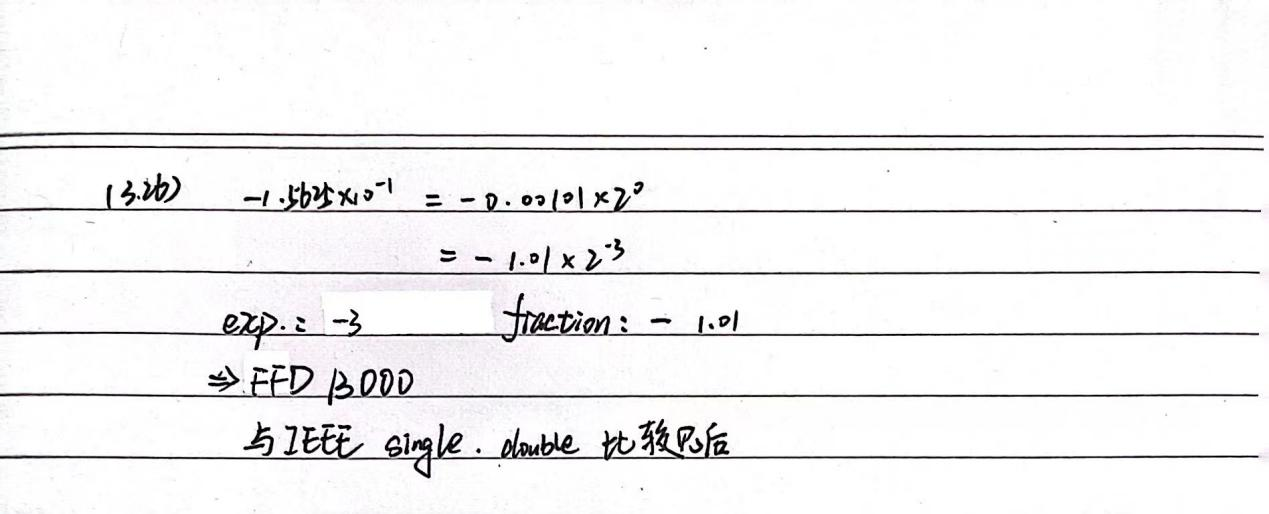 (3.26) -1.5625×10⁻¹ = -0.00101×2⁰
= -1.01×2⁻³
exp.: -3 fraction: - 1.01
⇒ FFD B000
与IEEE single. double 比较见后